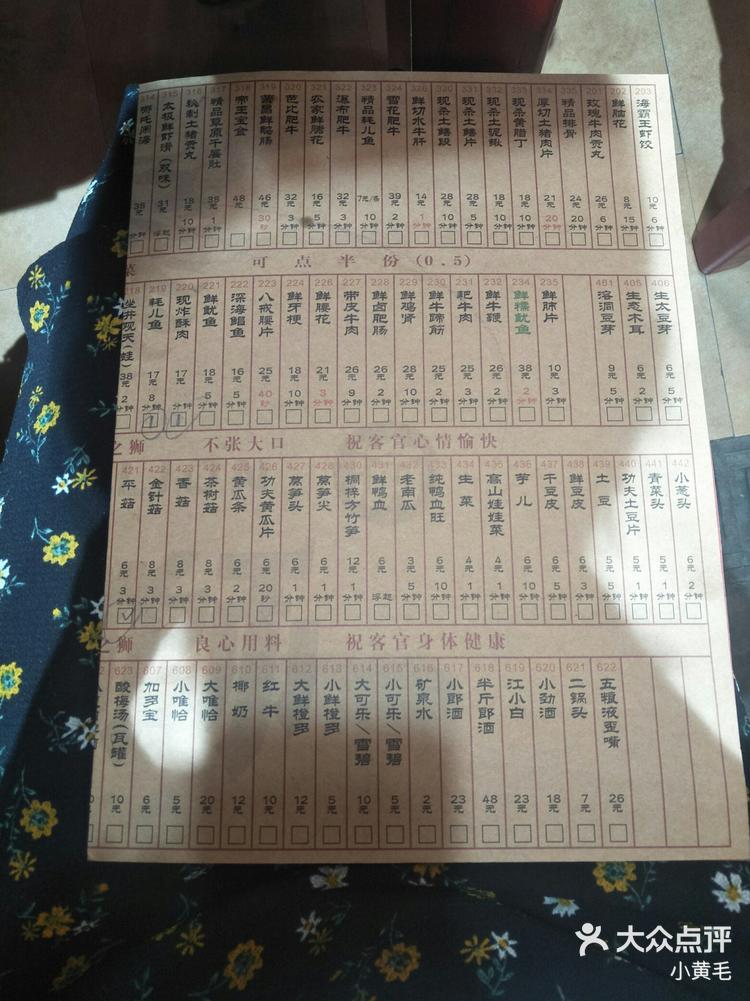 315 太极鲜虾滑(双味) 31元 浮起
316 秘制土猪贡丸 18元 10分钟
317 精品草原千层肚 38元 1分钟
318 帝王宝盒 48元
319 黄昌鲜脑肠 46元 30秒
320 芭比肥牛 32元 3分钟
321 农家鲜腰花 16元 5分钟
322 瀑布肥牛 32元 3分钟
323 精品耗儿鱼 7元/条 10分钟
324 雪花肥牛 39元 2分钟
326 鲜切水牛肝 14元 1分钟
330 现杀土鳝段 28元 10分钟
331 现杀土鳝片 28元 5分钟
332 现杀土泥鳅 18元 10分钟
333 现杀黄腊丁 18元 10分钟
334 厚切土猪肉片 21元 20分钟
335 精品排骨 24元 20分钟
201 玫瑰牛肉贡丸 20元 6分钟
202 鲜脑花 8元 15分钟
203 海霸王虾饺 10元 6分钟
菜 可点半份(0.5)
218 坐井观天(蛙) 38元 2分钟
219 耗儿鱼 17元 8分钟
220 现炸酥肉 17元 分钟
221 鲜鱿鱼 18元 5分钟
222 深海鲳鱼 16元 5分钟
223 八戒腰片 25元 40秒
224 鲜牙梗 18元 10分钟
226 鲜腰花 21元 3分钟
227 带皮牛肉 26元 9分钟
228 鲜卤肥肠 26元 2分钟
229 鲜鸡肾 28元 10分钟
230 鲜牛蹄筋 28元 2分钟
231 耙牛肉 25元 2分钟
232 鲜牛鞭 26元 2分钟
234 鲜糯鱿鱼 38元 2分钟
235 鲜肺片 10元 3分钟
401 溶洞豆芽 9元 5分钟
405 生态木耳 6元 2分钟
406 生太豆芽 6元 5分钟
之狮 不张大口 祝客官心情愉快
421 平菇 6元 3分钟
422 金针菇 8元 3分钟
423 香菇 8元 3分钟
424 茶树菇 8元 3分钟
425 黄瓜条 6元 2分钟
426 功夫黄瓜片 6元 20秒
427 莴笋头 6元 1分钟
428 莴笋尖 6元 1分钟
430 桐梓方竹笋 12元 1分钟
431 鲜鸭血 6元 浮起
432 老南瓜 5元 5分钟
433 纯鸭血旺 6元 10分钟
434 生菜 4元 1分钟
435 高山娃娃菜 4元 1分钟
436 芋儿 6元 10分钟
437 干豆皮 6元 5分钟
438 鲜豆皮 6元 3分钟
439 土豆 5元 5分钟
440 功夫土豆片 5元 1分钟
441 青菜头 5元 1分钟
442 小葱头 6元 2分钟
之狮 良心用料 祝客官身体健康
623 酸梅汤(瓦罐) 10元
607 加多宝 6元
608 小唯怡 5元
609 大唯怡 20元
610 椰奶 12元
611 红牛 10元
612 大鲜橙多 12元
613 小鲜橙多 5元
614 大可乐/雪碧 10元
615 小可乐/雪碧 5元
616 矿泉水 2元
617 小郎酒 23元
618 半斤郎酒 48元
619 江小白 23元
620 小劲酒 18元
621 二锅头 7元
622 五粮液歪嘴 26元
大众点评
小黄毛